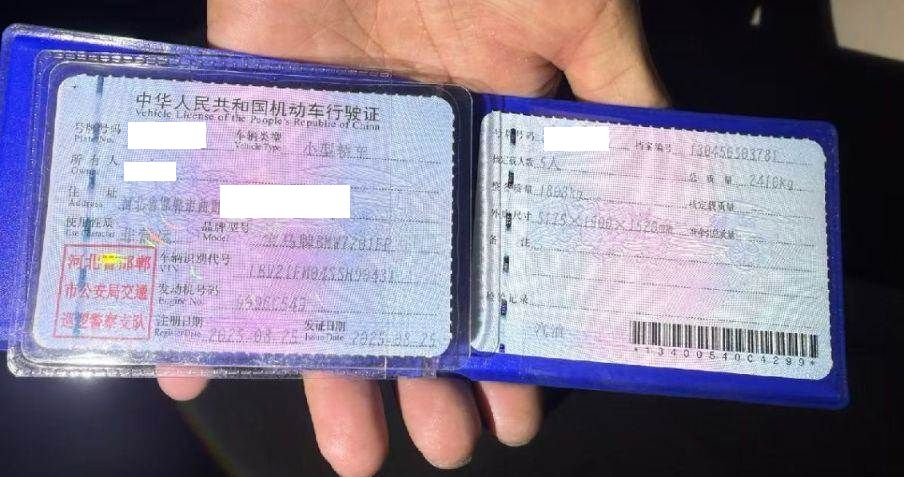 中华人民共和国机动车行驶证
Vehicle License of the People's Republic of China
号牌号码
Plate No.
车辆类型
Vehicle Type
小型轿车
所有人
Owner
住址
Address
河北省邯郸市
使用性质
Use Character
非营运
品牌型号
Model
河北省邯郸
市公安局交通
巡警察支队
车辆识别代号
VIN
发动机号码
Engine No.
注册日期
Register Date
2025.08.25
发证日期
Issue Date
2025.08.25
号牌号码
档案编号
核定载人数 5人
总质量 2410kg
整备质量
核定载质量
外廓尺寸
准牵引总质量
备注
检验记录
汽油
*13400540C4299*